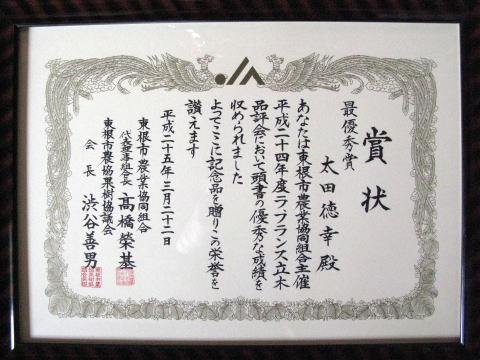 賞状
最優秀賞
太田徳幸 殿
あなたは東根市農業協同組合主催
平成二十四年度ラ・フランス立木
品評会において頭書の優秀な成績を
収められました
よってここに記念品を贈りこの栄誉を
讃えます
平成二十五年三月二十二日
東根市農業協同組合
代表理事組合長 高橋榮基
東根市農協果樹協議会
会長 渋谷善男